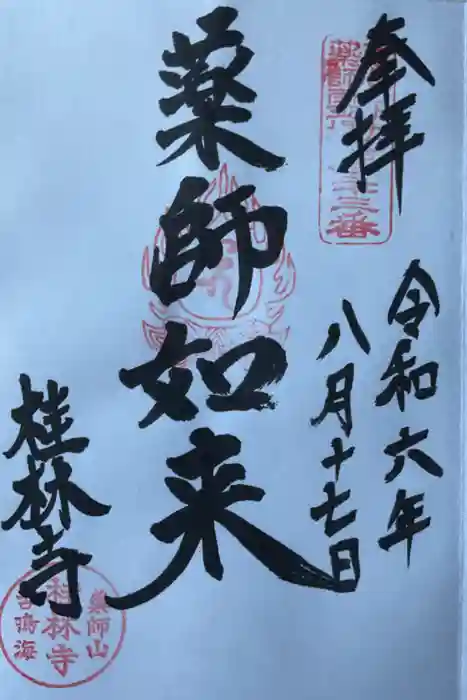 奉拝
令和六年
八月十七日
薬師如来
桂林寺
薬師山
桂林寺